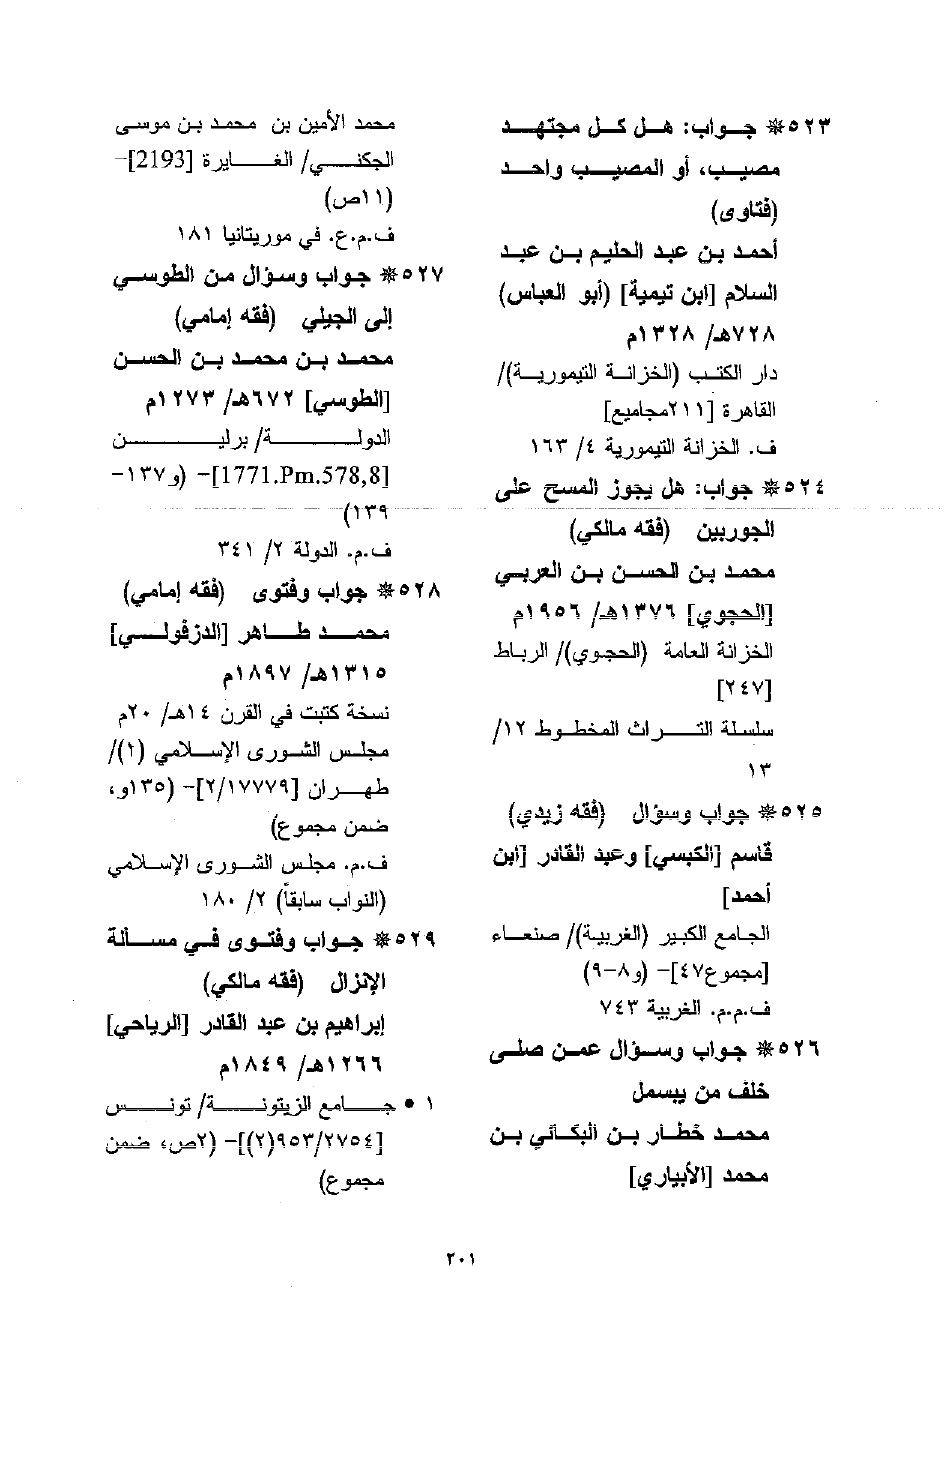 ٥٢٣❋ جـواب: هـل كـل مجتهـد
مصيب، أو المصيب واحد
(فتاوى)
أحمد بن عبد الحليم بن عبد
السلام [ابن تيمية] (أبو العباس)
٧٢٨هـ/ ١٣٢٨م
دار الكتب (الخزانة التيمورية)/
القاهرة [٢١١مجاميع]
ف. الخزانة التيمورية ٤/ ١٦٣
٥٢٤❋ جواب: هل يجوز المسح على
الجوربين (فقه مالكي)
محمد بن الحسن بن العربي
[الحجوي] ١٣٧٦هـ/ ١٩٥٦م
الخزانة العامة (الحجوي)/ الرباط
[٢٤٧]
سلسلة التراث المخطوط ١٢/
١٣
٥٢٥❋ جواب وسؤال (فقه زيدي)
قاسم [الكبسي] وعبد القادر [ابن
أحمد]
الجامع الكبير (الغربية)/ صنعاء
[مجموع٤٧]- (و٨-٩)
ف.م.م. الغربية ٧٤٣
٥٢٦❋ جواب وسؤال عمن صلى
خلف من يبسمل
محمد خطار بن البكائي بن
محمد [الأبياري]
محمد الأمين بن محمد بن موسى
الجكني/ الغايرة [2193]-
(١١ص)
ف.م.ع. في موريتانيا ١٨١
٥٢٧❋ جواب وسؤال من الطوسي
إلى الجيلي (فقه إمامي)
محمد بن محمد بن الحسن
[الطوسي] ٦٧٢هـ/ ١٢٧٣م
الدولة/ برلين
[1771.Pm.578,8]- (و١٣٧-
١٣٩)
ف.م. الدولة ٢/ ٣٤١
٥٢٨❋ جواب وفتوى (فقه إمامي)
محمد طاهر [الدزفولي]
١٣١٥هـ/ ١٨٩٧م
نسخة كتبت في القرن ١٤هـ/ ٢٠م
مجلس الشورى الإسلامي (١)/
طهران [٢/١٧٧٧٩]- (١٣٥و،
ضمن مجموع)
ف.م. مجلس الشورى الإسلامي
(النواب سابقاً) ٢/ ١٨٠
٥٢٩❋ جواب وفتوى في مسألة
الإنزال (فقه مالكي)
إبراهيم بن عبد القادر [الرياحي]
١٢٦٦هـ/ ١٨٤٩م
١ • جامع الزيتونة/ تونس
[٩٥٣/٢٧٥٤(٢)]- (٢ص، ضمن
مجموع)
٢٠١